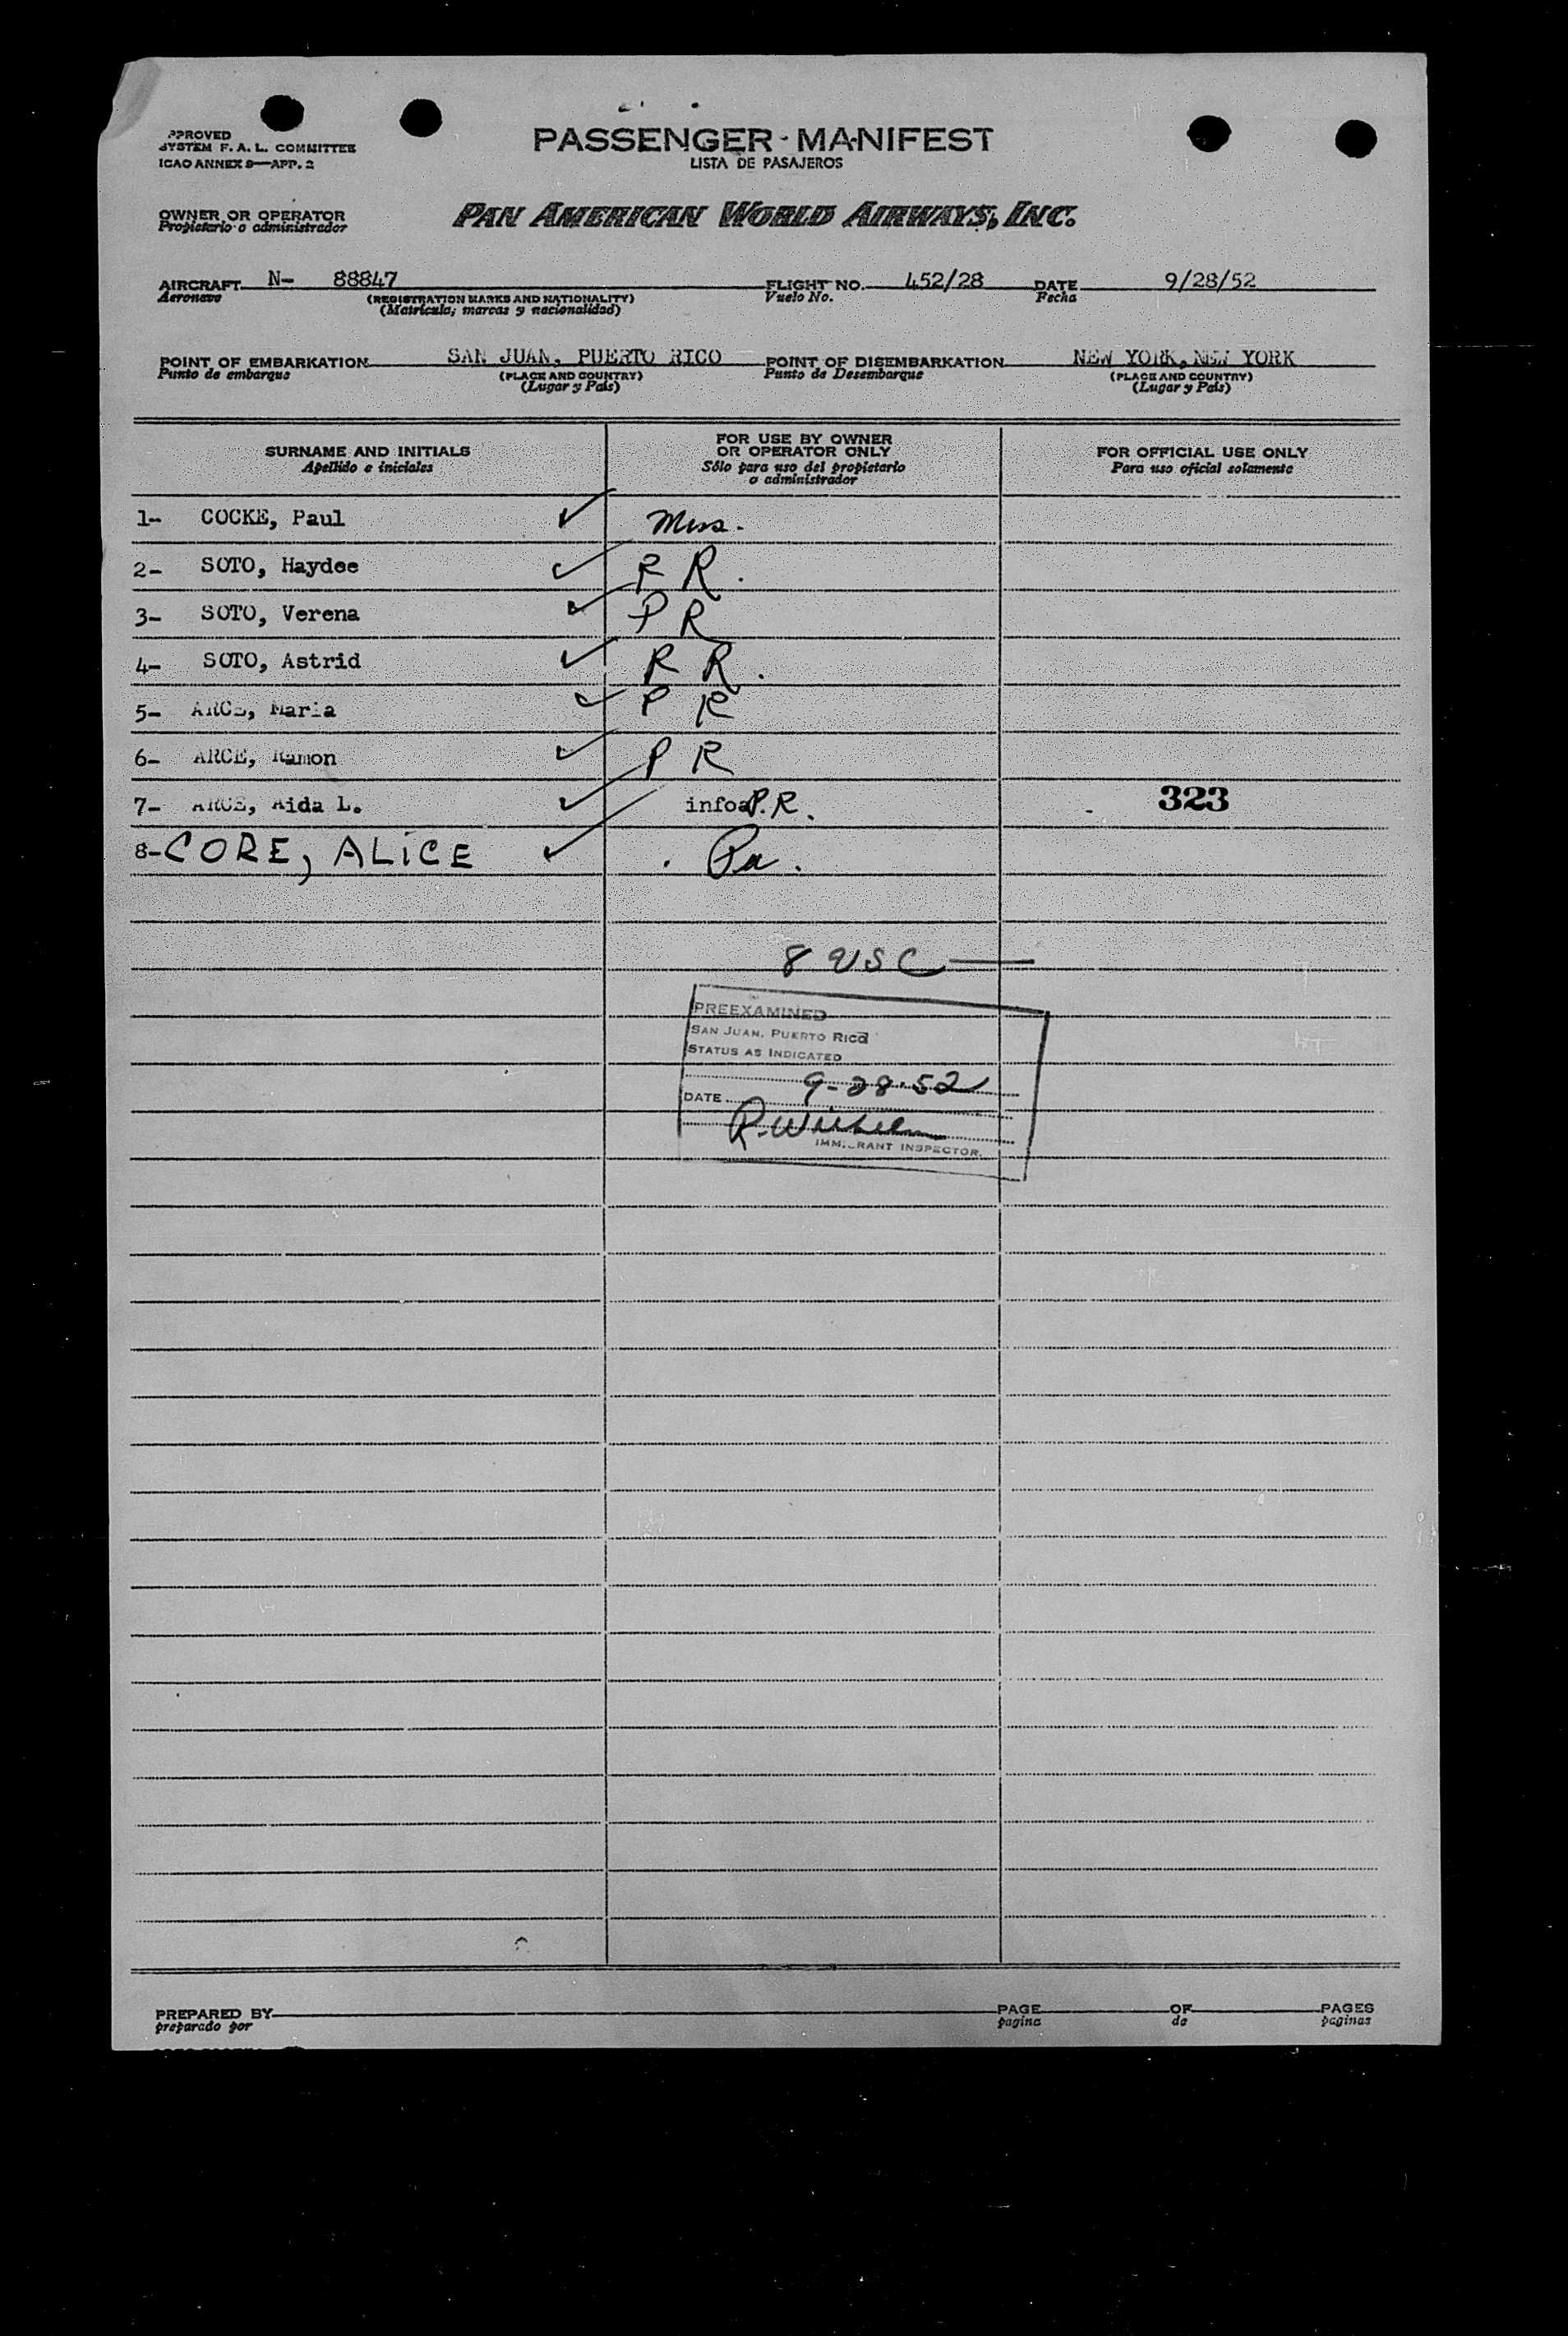 PPROVED
SYSTEM F. A. L. COMMITTEE
ICAO ANNEX 9—APP. 2
PASSENGER-MANIFEST
LISTA DE PASAJEROS
OWNER OR OPERATOR
Propietario o administrador
PAN AMERICAN WORLD AIRWAYS, INC.
AIRCRAFT N- 88847 FLIGHT NO. 452/28 DATE 9/28/52
Aeronave (REGISTRATION MARKS AND NATIONALITY) Vuelo No. Fecha
(Matrícula; marcas y nacionalidad)
POINT OF EMBARKATION SAN JUAN, PUERTO RICO POINT OF DISEMBARKATION NEW YORK, NEW YORK
Punto de embarque (PLACE AND COUNTRY) Punto de Desembarque (PLACE AND COUNTRY)
(Lugar y País) (Lugar y País)
SURNAME AND INITIALS
Apellido e iniciales
FOR USE BY OWNER
OR OPERATOR ONLY
Sólo para uso del propietario
o administrador
FOR OFFICIAL USE ONLY
Para uso oficial solamente
1- COCKE, Paul ✓ Miss.
2- SOTO, Haydee ✓ P R.
3- SOTO, Verena ✓ P R
4- SOTO, Astrid ✓ P R.
5- ARCE, Maria ✓ P R
6- ARCE, Ramon ✓ P R
7- ARCE, Aida L. ✓ infoa P.R. 323
8- CORE, ALICE ✓ Pa.
8 USC
PREEXAMINED
SAN JUAN, PUERTO RICO
STATUS AS INDICATED
DATE 9-28-52
IMMIGRANT INSPECTOR.
PREPARED BY PAGE OF PAGES
preparado por pagina de paginas